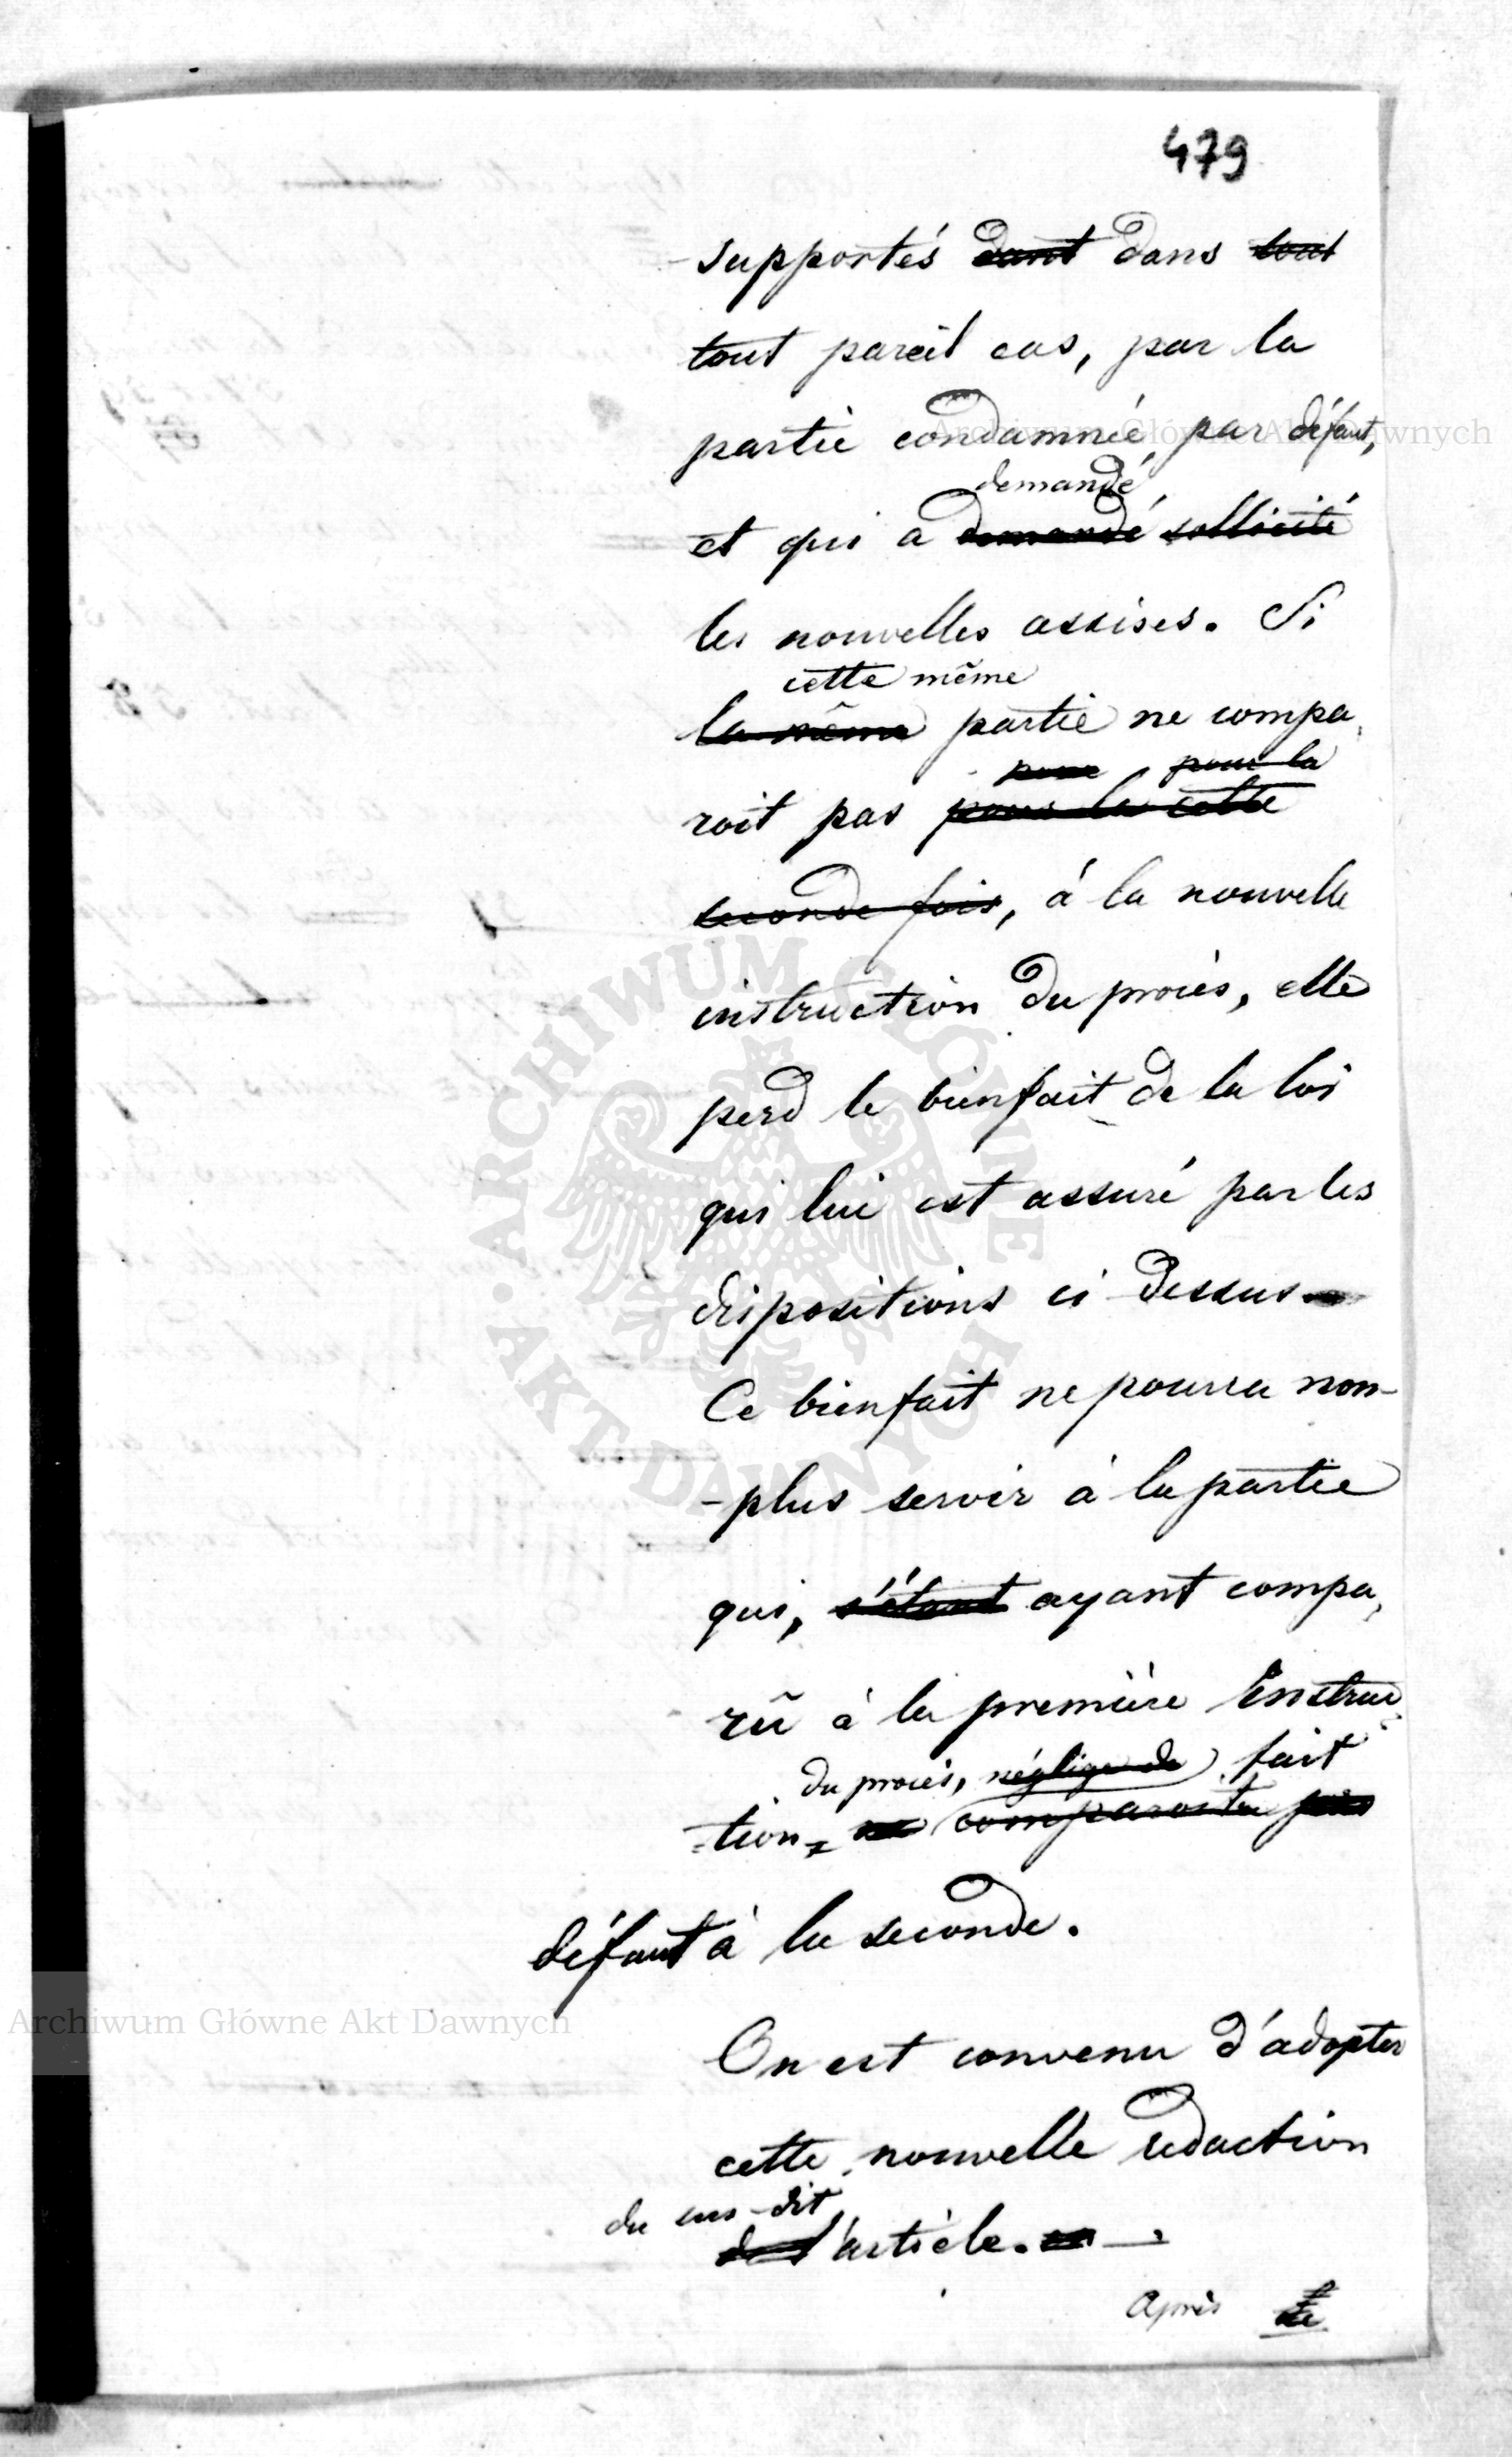 479
-supportés dant dans tout
tout pareil cas, par la
partie condamnée, par défaut,
demandé
et qui a demandé sollicité
les nouvelles assises. Si
cette même
la même partie ne compa,
pour pour la
roit pas pour la cette
seconde fois, à la nouvelle
instruction du procès, elle
perd le bienfait de la loi
qui lui est assuré par les
dispositions ci dessus.
Ce bienfait ne pourra non-
-plus servir à la partie
qui, s'étant ayant compa,
rû à la première Instruc
du procès, néglige de fait
-tion, ne comparoitre pas
défaut à la seconde.
On est convenu d'adopter
cette nouvelle rédaction
du sus-dit
de l'article.
Après
Archiwum Główne Akt Dawnych
Archiwum Główne Akt Dawnych
ARCHIWUM GŁÓWNE
AKT DAWNYCH